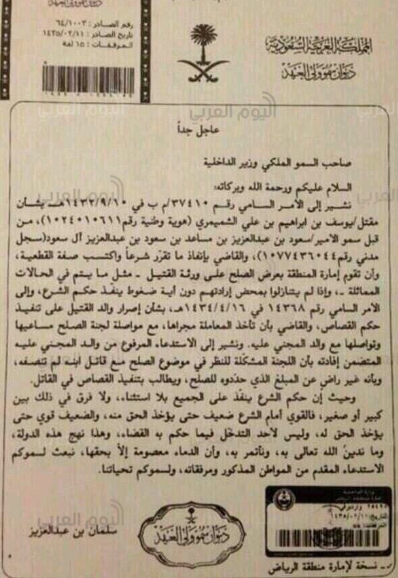 ديوان سمو ولي العهد
رقم الصادر : ٦٤/١٠٠٣
تاريخ الصادر : ١٤٣٥/٠٢/١١
المرفقات : ١٥ لفة
المملكة العربية السعودية
ديوان سمو ولي العهد
عاجل جداً
صاحب السمو الملكي وزير الداخلية
السلام عليكم ورحمة الله وبركاته:
نشير إلى الأمر السامي رقم ٣٧٤١٠/م ب في ١٤٣٢/٩/١٠هـ، بشأن
مقتل/يوسف بن ابراهيم بن علي الشميمري (هوية وطنية رقم ١٠٢٤٠١٠٦١١)، من
قبل سمو الأمير/سعود بن عبدالعزيز بن مساعد بن سعود بن عبدالعزيز آل سعود(سجل
مدني رقم ١٠٧٧٤٣٦٠٤٤)، والقاضي بإنفاذ ما تقرّر شرعاً واكتسب صفة القطعية،
وأن تقوم إمارة المنطقة بعرض الصلح على ورثة القتيل - مثل ما يتم في الحالات
المماثلة -، وإذا لم يتنازلوا بمحض إرادتهم دون أية ضغوط ينفذ حكم الشرع، وإلى
الأمر السامي رقم ١٤٣٦٨ في ١٤٣٤/٤/١٦هـ، بشأن إصرار والد القتيل على تنفيذ
حكم القصاص، والقاضي بأن تأخذ المعاملة مجراها، مع مواصلة لجنة الصلح مساعيها
وتواصلها مع والد المجني عليه. ونشير إلى الاستدعاء المرفوع من والد المجني عليه
المتضمن إفادته بأن اللجنة المشكّلة للنظر في موضوع الصلح مع قاتل ابنه لم تنصفه،
وبأنه غير راض عن المبلغ الذي حددوه للصلح، ويطالب بتنفيذ القصاص في القاتل.
وحيث إن حكم الشرع ينفذ على الجميع بلا استثناء، ولا فرق في ذلك بين
كبير أو صغير، فالقوي أمام الشرع ضعيف حتى يؤخذ الحق منه، والضعيف قوي حتى
يؤخذ الحق له، وليس لأحد التدخل فيما حكم به القضاء، وهذا نهج هذه الدولة،
وما ندين الله تعالى به، ونأتمر به، وأن الدماء معصومة إلا بحقها، نبعث لسموكم
الاستدعاء المقدم من المواطن المذكور ومرفقاته، ولسموكم تحياتنا.
سلمان بن عبدالعزيز
ديوان سمو ولي العهد
- نسخة لإمارة منطقة الرياض
اليوم العربي